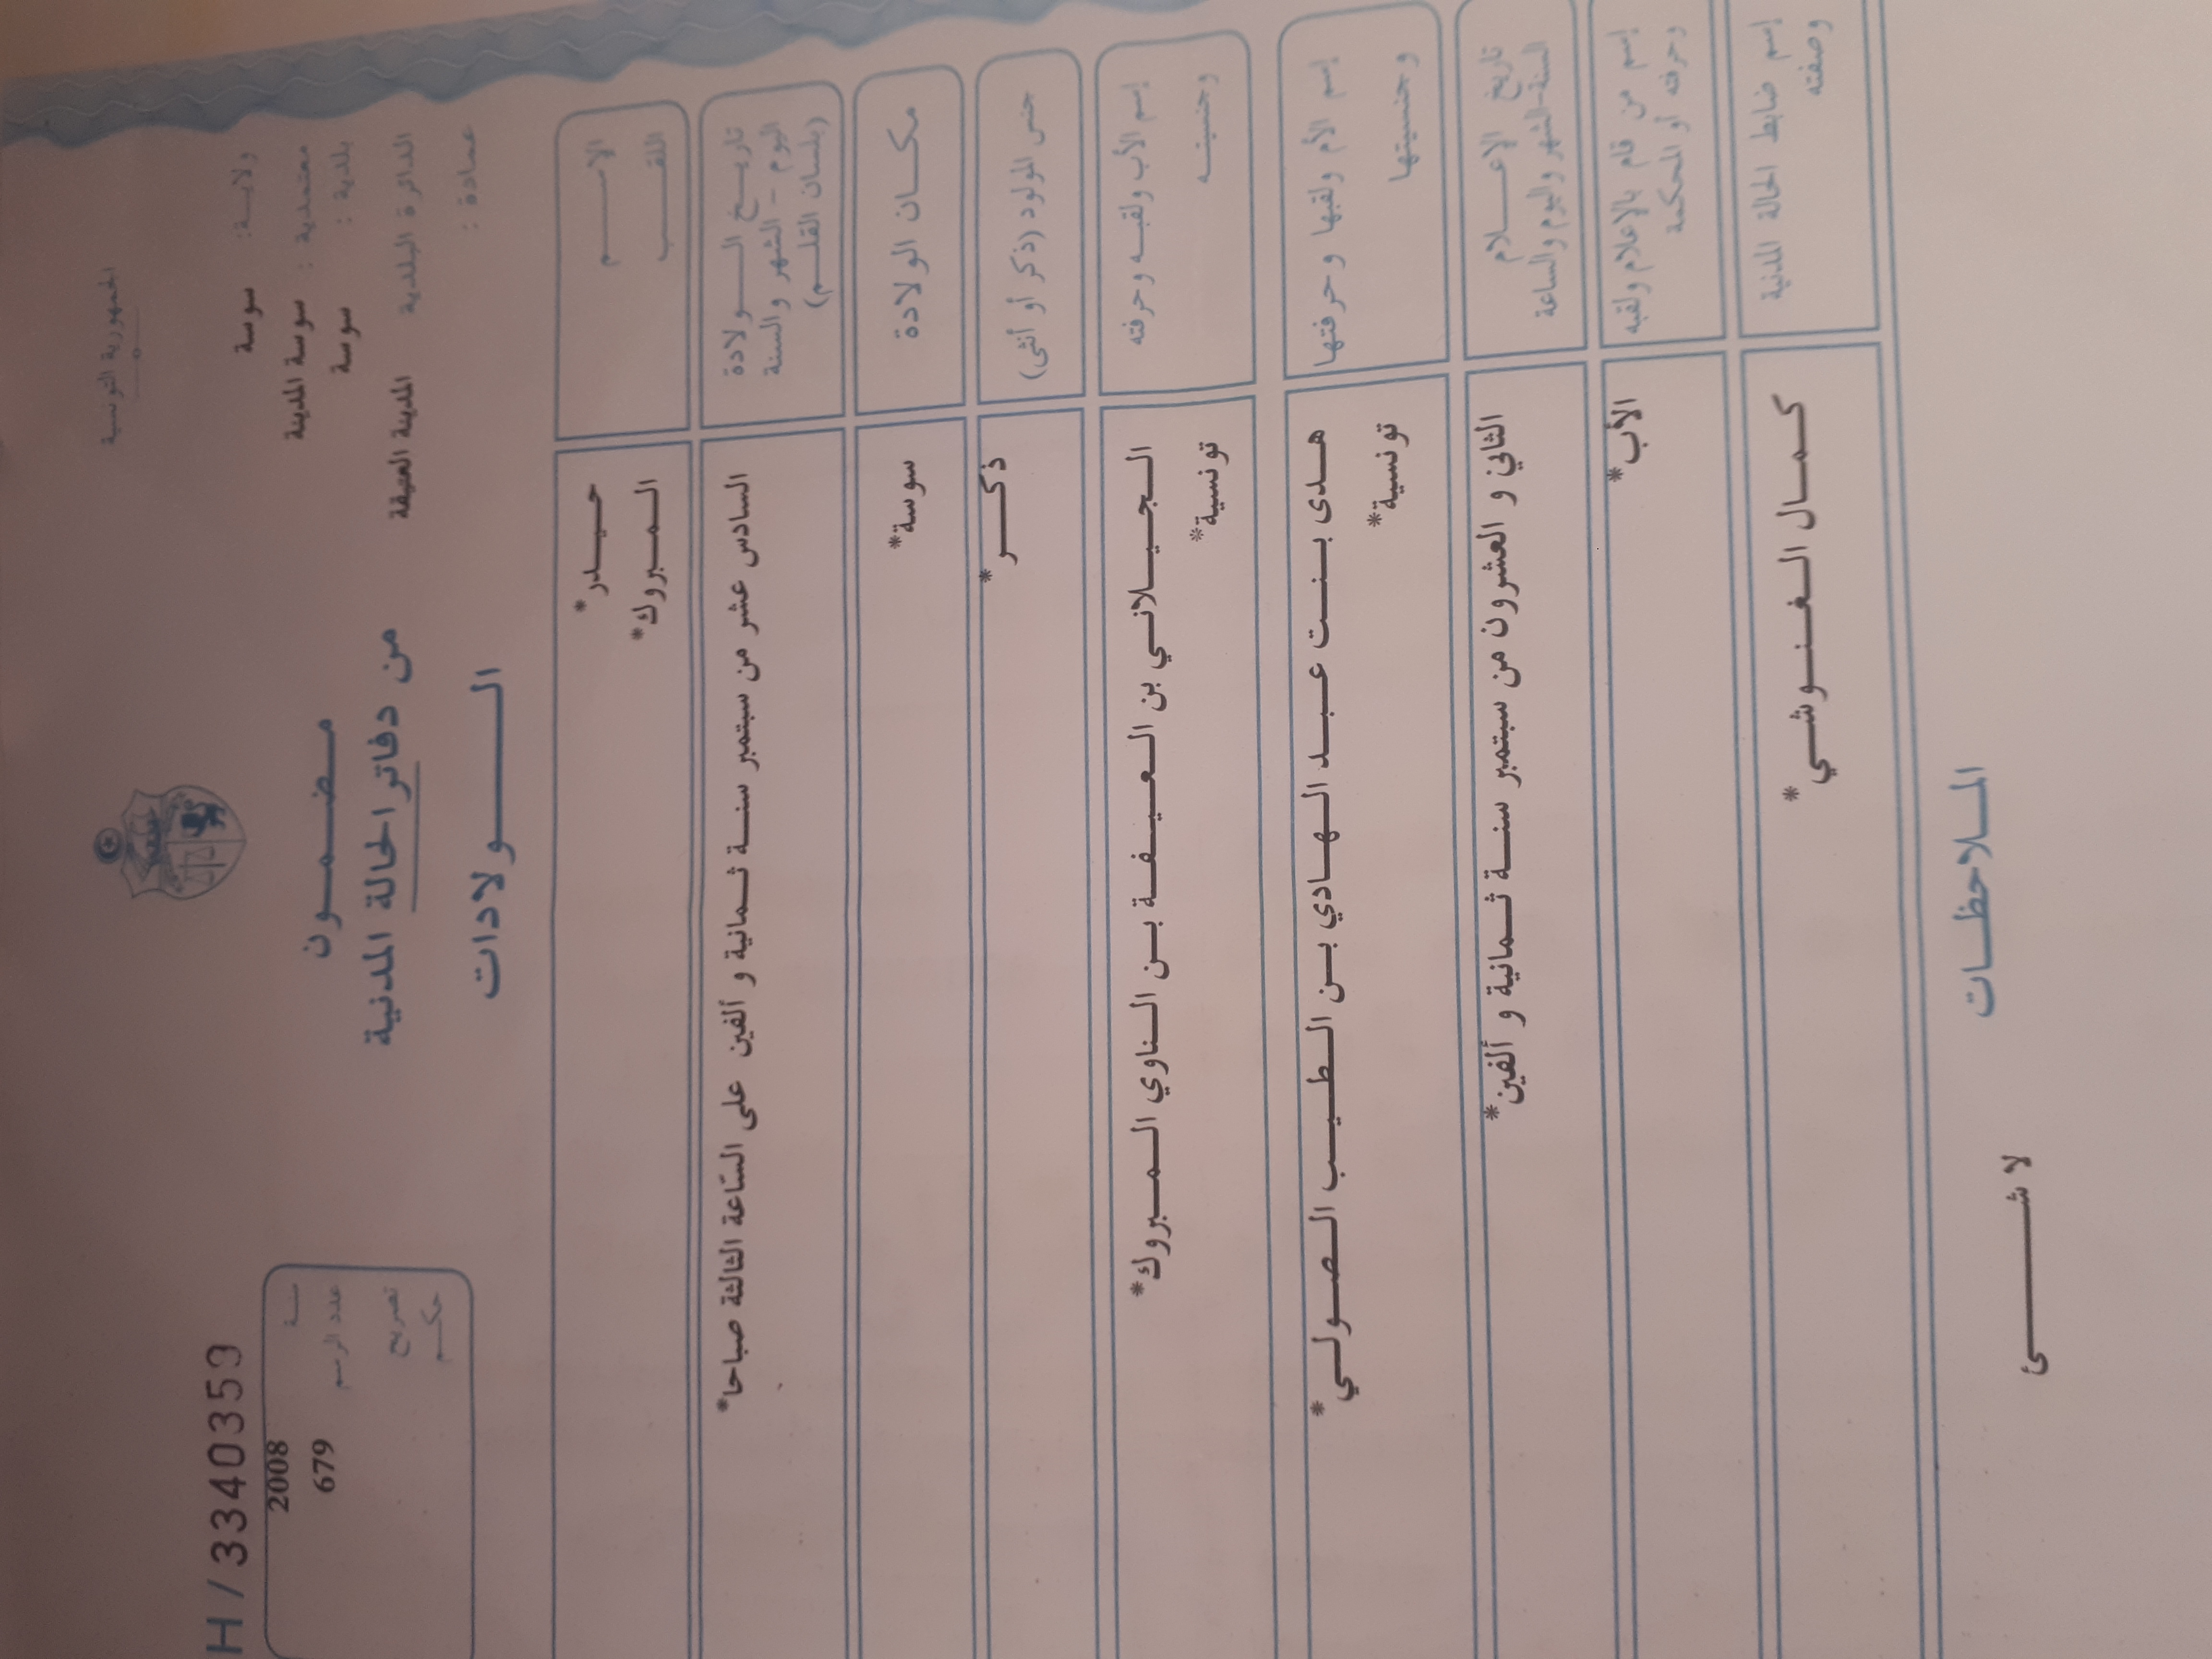 H / 3340353
الجمهورية التونسية
ولايـة: سوسة
معتمدية : سوسة المدينة
بلدية : سوسة
الدائرة البلدية المدينة العتيقة
عمادة :
مضمون
من دفاتر الحالة المدنية
الولادات
سنة 2008
عدد الرسم 679
تصريح
حكم
الاسم حيدر*
اللقب المبروك*
تاريخ الولادة
اليوم - الشهر والسنة
(بلسان القلم)
السادس عشر من سبتمبر سنة ثمانية و ألفين على السّاعة الثالثة صباحا*
مكان الولادة سوسة*
جنس المولود (ذكر أو أنثى) ذكر*
إسم الأب ولقبه وحرفته الجيلاني بن العيفة بن الناوي المبروك*
وجنسيته تونسية*
إسم الأم ولقبها وحرفتها هدى بنت عبد الهادي بن الطيب الصولي*
وجنسيتها تونسية*
تاريخ الإعلام
السنة-الشهر واليوم والساعة
الثاني و العشرون من سبتمبر سنة ثمانية و ألفين*
إسم من قام بالإعلام ولقبه
وحرفته أو المحكمة
الأب*
إسم ضابط الحالة المدنية
وصفته
كمال الغنوشي*
الملاحظات
لا شئ